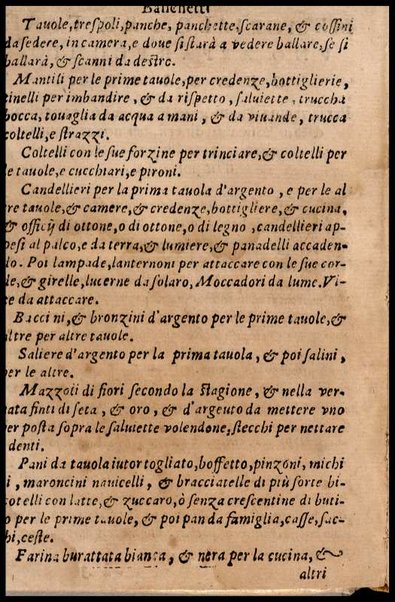 Banchetti
Tauole, trespoli, panche, panchette, scarane, & cossini
da sedere, in camera, e doue si starà a vedere ballare, se si
ballarà, & scanni da destro.
Mantili per le prime tauole, per credenze, bottiglierie,
tinelli per imbandire, & da rispetto, saluiette, truccha
bocca, touaglia da acqua a mani, & da viuande, trucca
coltelli, e strazzi.
Coltelli con le sue forzine per trinciare, & coltelli per
le tauole, e cucchiari, e pironi.
Candellieri per la prima tauola d'argento, e per le al
tre tauole, & camere, & credenze, bottigliere, & cucina,
& officij di ottone, o di ottone, o di legno, candellieri ap-
pesi al palco, e da terra, & lumiere, & panadelli accaden-
do. Poi lampade, lanternoni per attaccare con le sue cor-
de, & girelle, lucerne da solaro, Moccadori da lume. Vi-
te da attaccare.
Baccini, & bronzini d'argento per le prime tauole, &
altre per altre tauole.
Saliere d'argento per la prima tauola, & poi salini,
per le altre.
Mazzoti di fiori secondo la stagione, & nella ver-
nata finti di seta, & oro, & d'argeuto da mettere vno
per posta sopra le saluiette volendone, stecchi per nettare
denti.
Pani da tauola iutortogliato, boffetto, pinzoni, michi
i, maroncini nauicelli, & bracciatelle di più sorte bi-
scotelli con latte, & zuccaro, ò senza crescentine di buti-
ro per le prime tauole, & poi pan da famiglia, casse, sac-
chi, ceste.
Farina burattata bianca, & nera per la cucina, &
altri